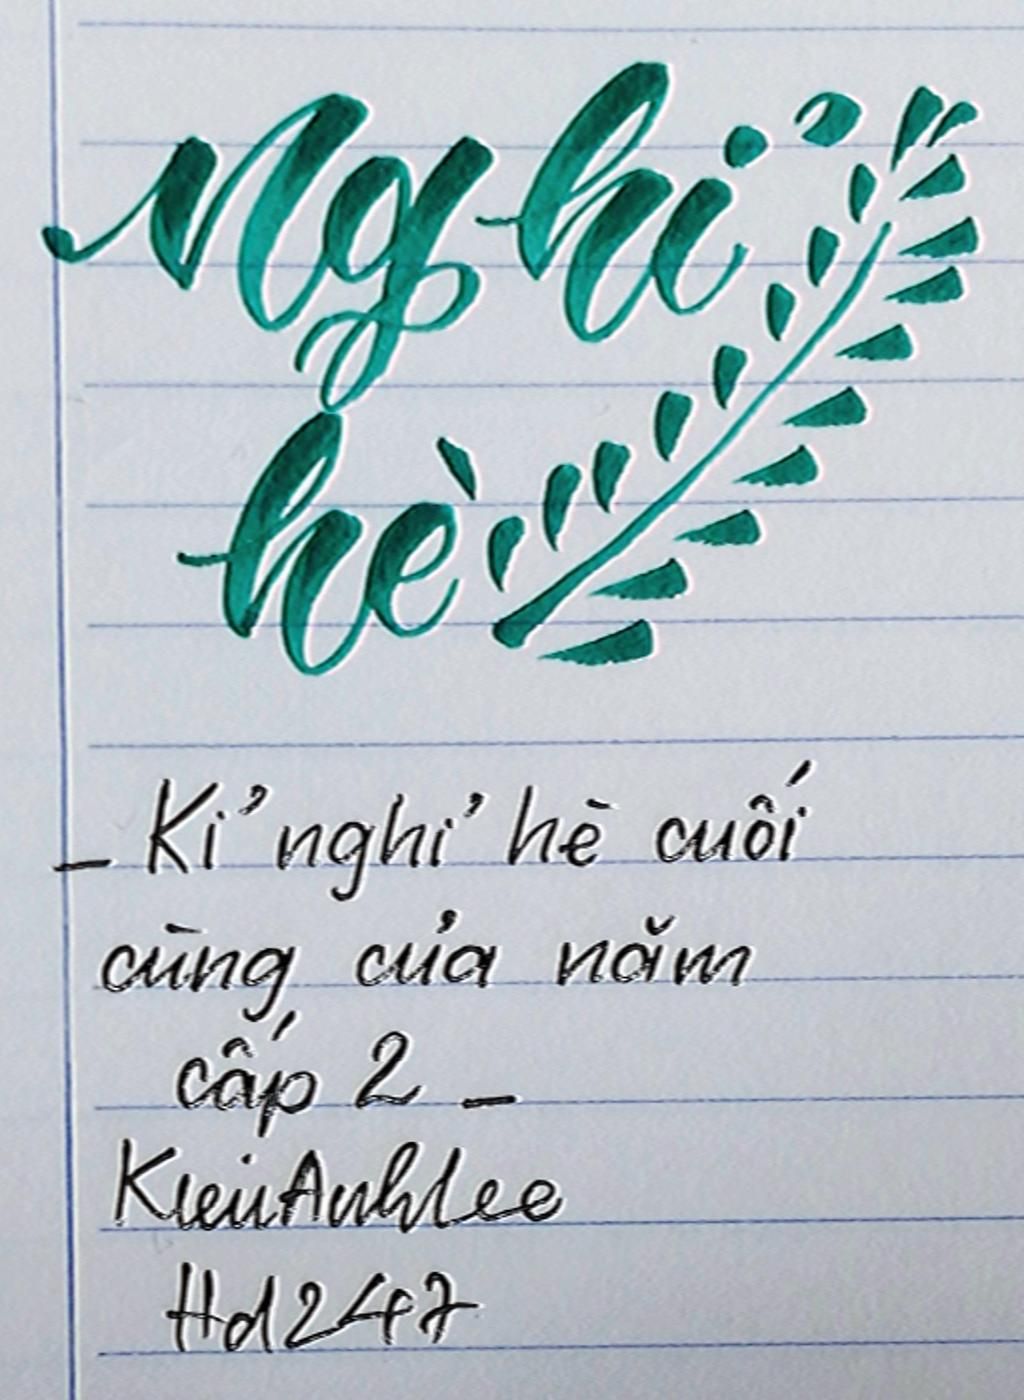 Nghỉ
hè
- Kỉ nghỉ hè cuối
cùng của năm
cấp 2 -
KieuAnhlee
Hd247